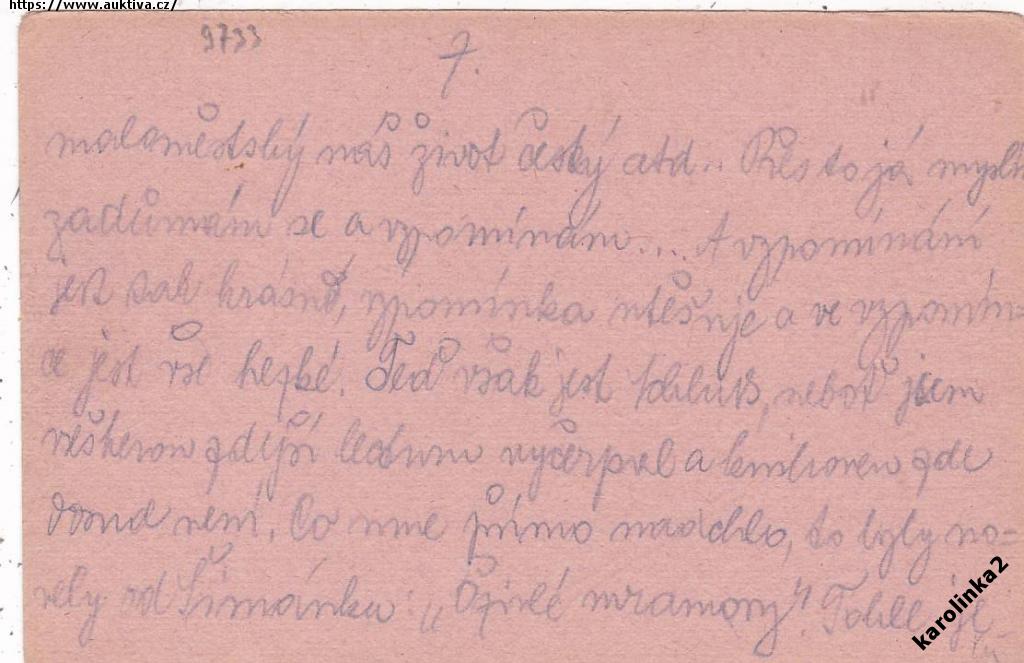 https://www.auktiva.cz/
9733
7.
maloměstský náš život český atd.. Přes to já myslím
zadůmám se a vzpomínám.... A vzpomínání
jest tak krásné, vzpomínka utěšuje a ve vzpomín-
ce jest vše hezké. Teď však jest neboť jsem
veškerou zdejší vyčerpal a knihoven zde
dosud není. Co mne přímo nadchlo, to byly no=
vely od Šimánka: „Oživlé mramory". Tohle je
karolinka2